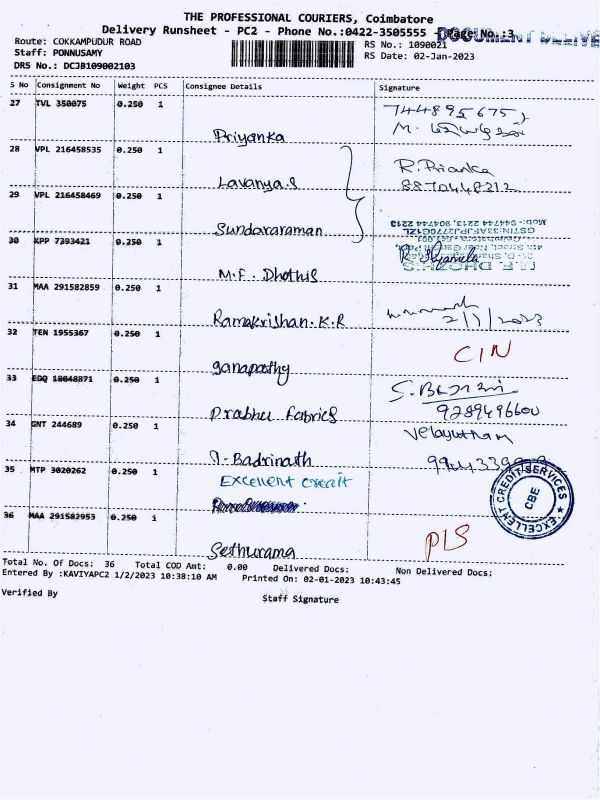 THE PROFESSIONAL COURIERS, Coimbatore
Delivery Runsheet - PC2 - Phone No.:0422-3505555 - Page No.:3
DOCUMENT DELIVE
Route: COKKAMPUDUR ROAD
RS No.: 1090021
Staff: PONNUSAMY
RS Date: 02-Jan-2023
DRS No.: DCJB109002103
S No Consignment No Weight PCS Consignee Details Signature
27 TVL 350075 0.250 1
7448956757
Priyanka
28 VPL 216458535 0.250 1
R. Prianka
Lavanya.S
8870448212
29 VPL 216458469 0.250 1
Sundararaman
30 KPP 7393421 0.250 1
M.F. Dhotis
31 MAA 291582859 0.250 1
Ramakrishan.K.R
2/1/2023
32 TEN 1955367 0.250 1
CIN
ganapathy
33 EDQ 18048871 0.250 1
Prabhu Fabrics
9289496600
34 GNT 244689 0.250 1
Velayutham
T. Badrinath
35 MTP 3020262 0.250 1
Excellent credit
EXCELLENT CREDIT SERVICES
CBE
36 MAA 291582953 0.250 1
Sethurama
Total No. Of Docs: 36 Total COD Amt: 0.00 Delivered Docs: Non Delivered Docs:
Entered By :KAVIYAPC2 1/2/2023 10:38:10 AM Printed On: 02-01-2023 10:43:45
Verified By
Staff Signature